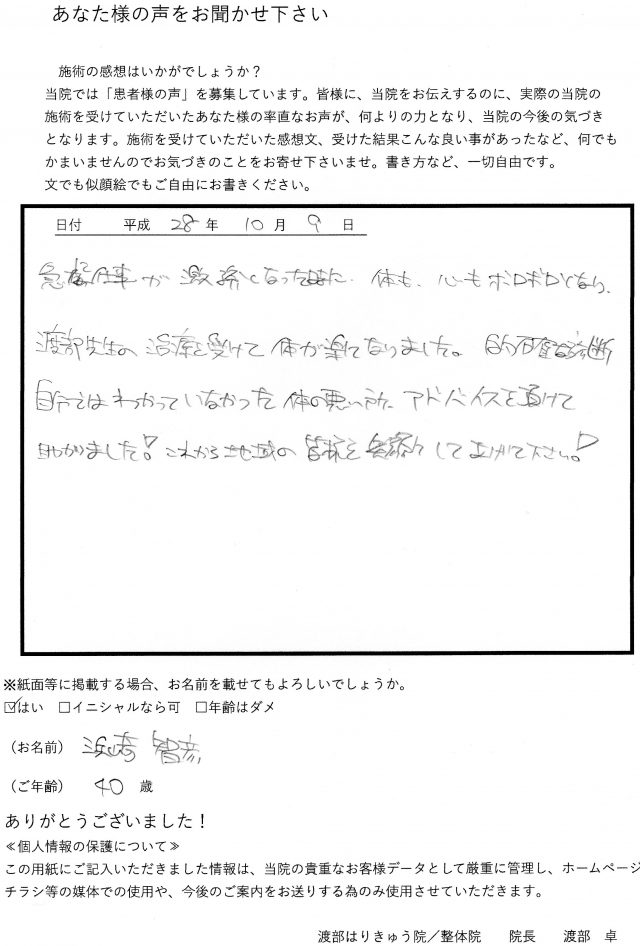 あなた様の声をお聞かせ下さい
施術の感想はいかがでしょうか？
当院では「患者様の声」を募集しています。皆様に、当院をお伝えするのに、実際の当院の
施術を受けていただいたあなた様の率直なお声が、何よりの力となり、当院の今後の気づき
となります。施術を受けていただいた感想文、受けた結果こんな良い事があったなど、何でも
かまいませんのでお気づきのことをお寄せ下さいませ。書き方など、一切自由です。
文でも似顔絵でもご自由にお書きください。
日付 平成 28 年 10 月 9 日
急に仕事が激務になった時に、体も、心もボロボロになり、
渡部先生の治療を受けて体が楽になりました。的確な診断
自分ではわかっていなかった体の悪い所、アドバイスを受けて
助かりました！これから地域の皆様を してあげて下さい。
※紙面等に掲載する場合、お名前を載せてもよろしいでしょうか。
☑はい □イニシャルなら可 □年齢はダメ
（お名前） 浜崎 智彦
（ご年齢） 40 歳
ありがとうございました！
≪個人情報の保護について≫
この用紙にご記入いただきました情報は、当院の貴重なお客様データとして厳重に管理し、ホームページ
チラシ等の媒体での使用や、今後のご案内をお送りする為のみ使用させていただきます。
渡部はりきゅう院／整体院 院長 渡部 卓